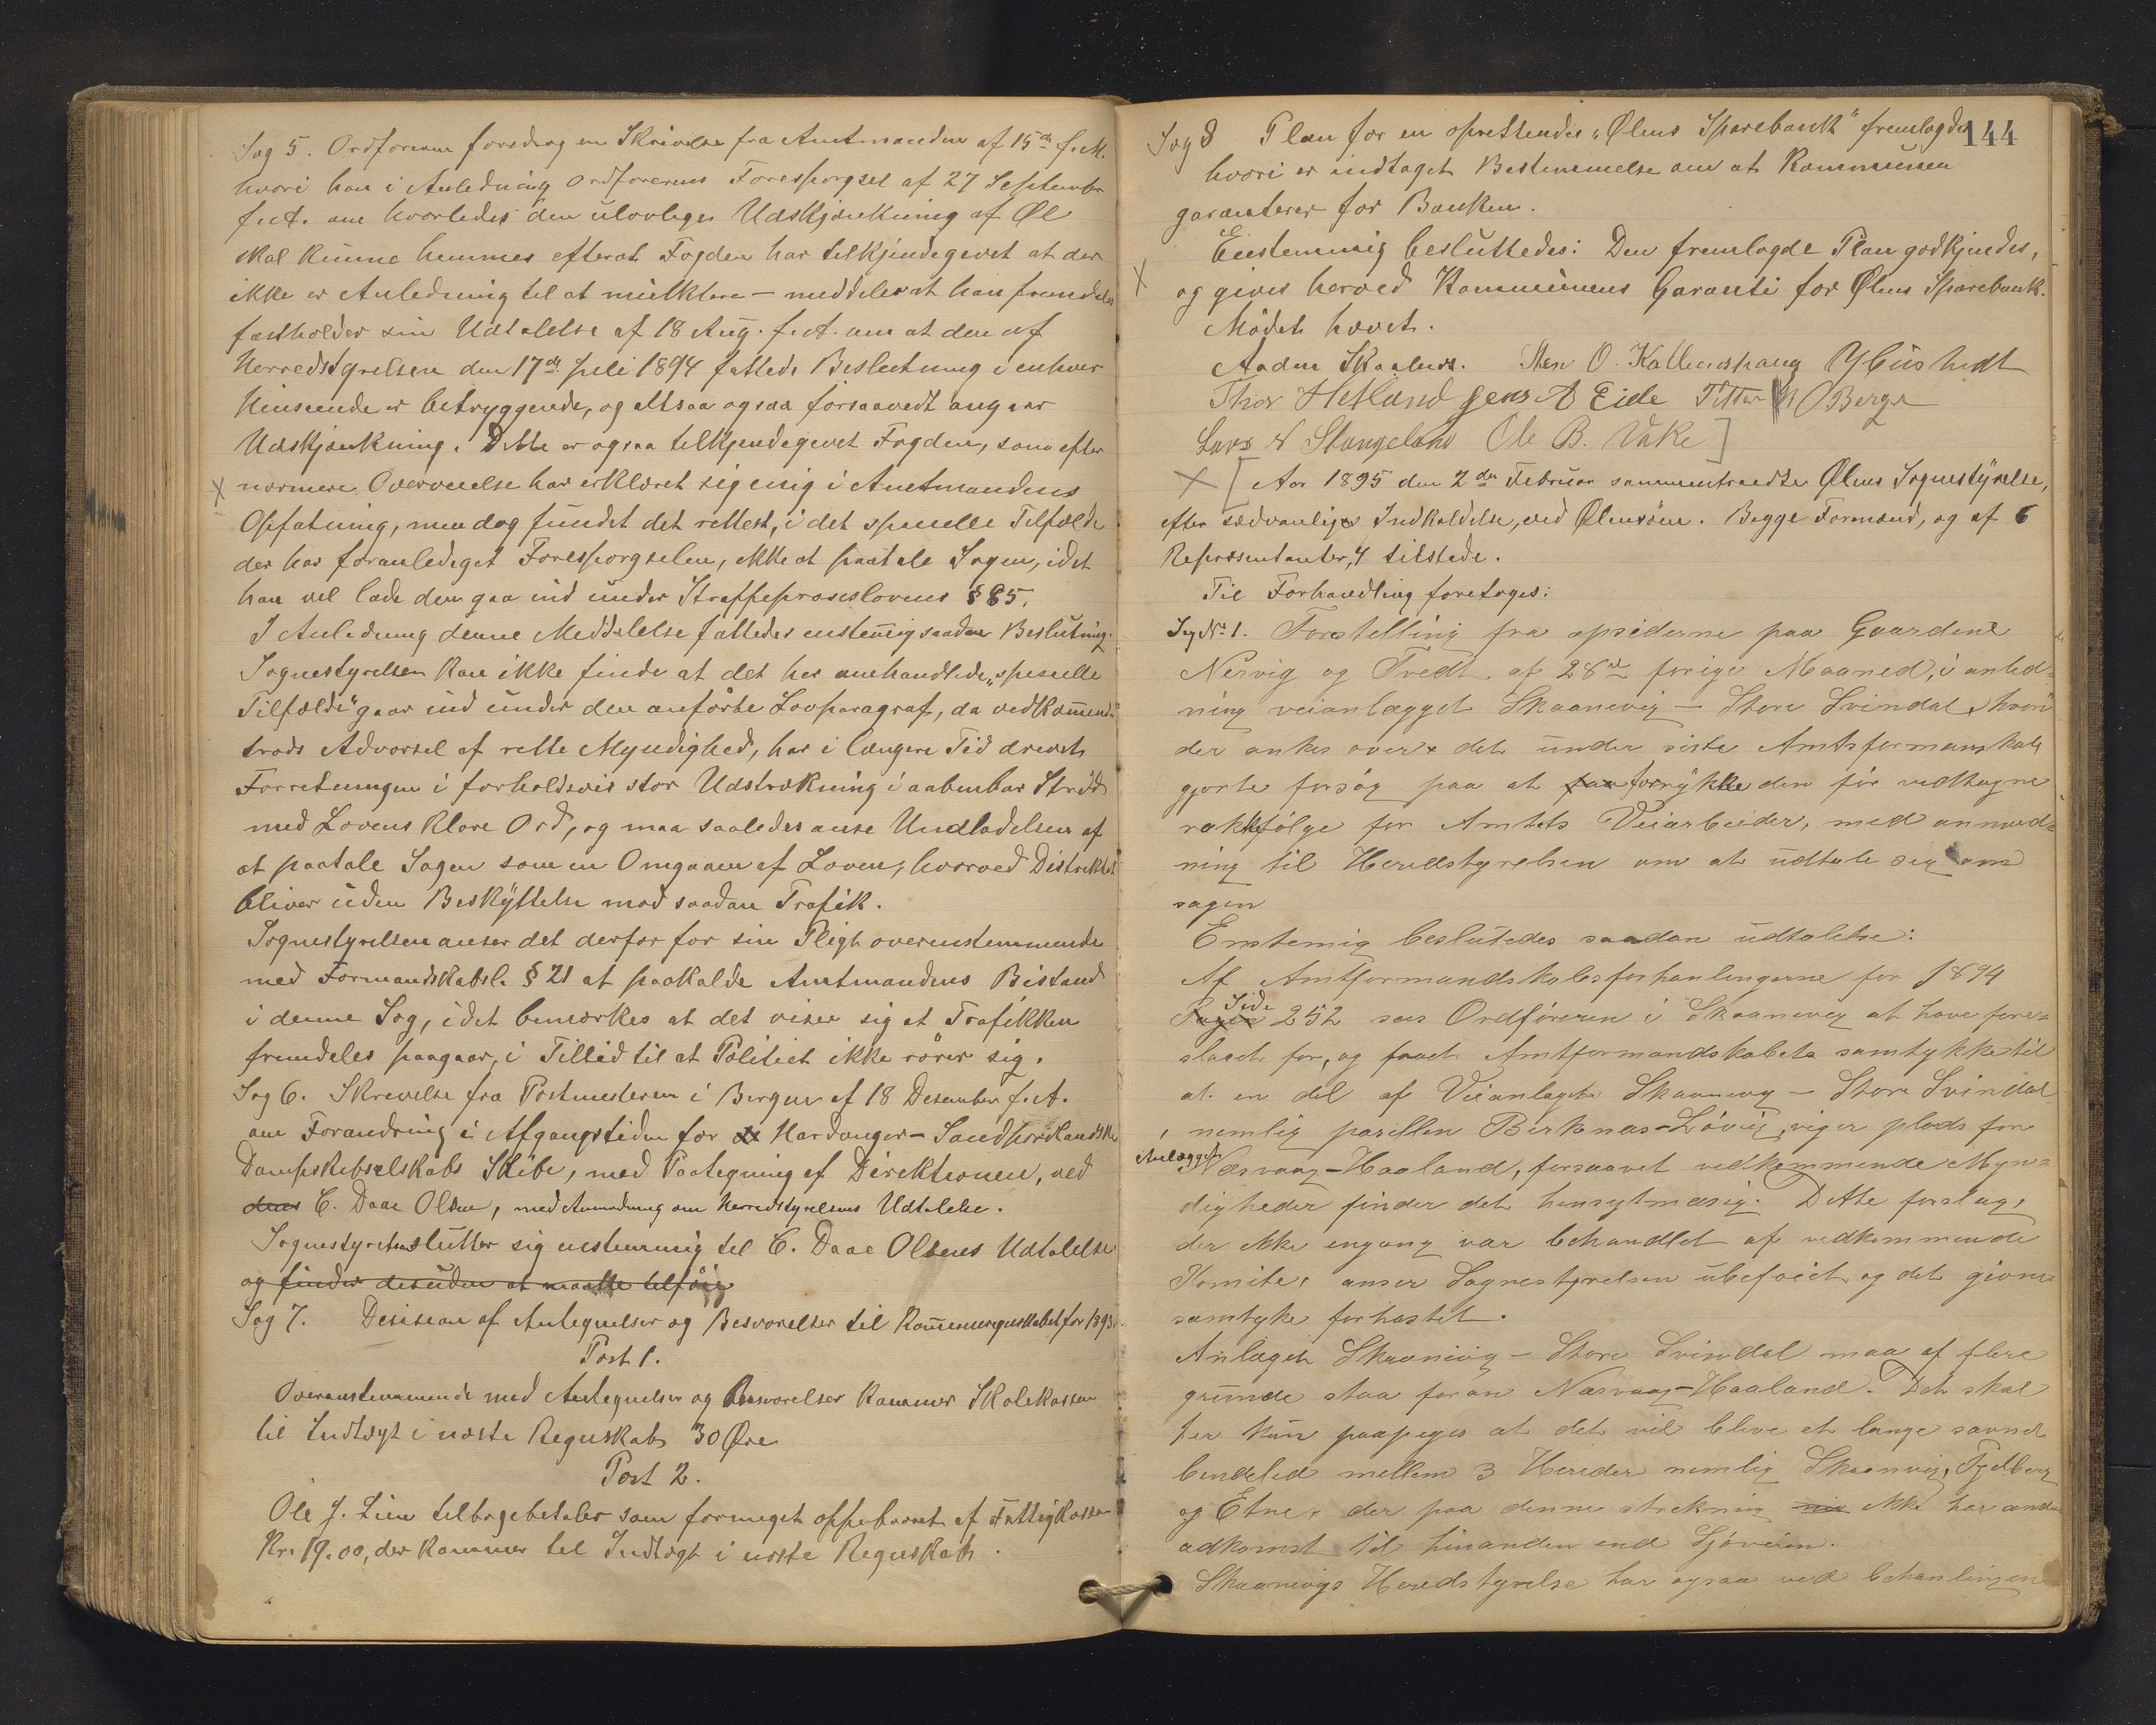 Sag 5. Ordføreren foredrog en Skrivelse fra Amtmanden af 15de f. M.
hvori han i Anledning Ordførerens Forespørgsel af 27 September
f. A. om hvorledes den ulovlige Udskjænkning af Øl
skal kunne hemmes efterat Fogden har tilkjendegivet at der
ikke er Anledning til at mulktere – meddeler at han fremdeles
fastholder sin Udtalelse af 18 Aug. f. A. om at den af
Herredstyrelsen den 17de Juli 1894 fattede Beslutning i enhver
Henseende er betryggende, og altsaa ogsaa forsaavidt angaar
Udskjænkning. Dette er ogsaa tilkjendegivet Fogden, som efter
nærmere Overveielse har erklæret sig enig i Amtmandens
Opfatning, men dog fundet det rettest, i det specielle Tilfælde
der har foranlediget Forespørgselen, ikke at paatale Sagen, idet
han vil lade den gaa ind under Straffeproseslovens § 85.
I Anledning denne Meddelelse fattedes enstemig saadan Beslutning:
Sognestyrelsen kan ikke finde at det her omhandlede „spesielle
Tilfælde" gaar ind under den anførte Lovparagraf, da vedkommende
trods Advarsel af rette Myndighed, har i længere Tid drevet
Forretningen i forholdsvis stor Udstrækning i aabenbar Strid
med Lovens klare Ord, og maa saaledes anse Undladelsen af
at paatale Sagen som en Omgaaen af Loven, hvorved Distriktet
bliver uden Beskyttelse mod saadan Trafik.
Sognestyrelsen anser det derfor for sin Pligt overenstemmende
med Formandskabsl. § 21 at paakalde Amtmandens Bistand
i denne Sag, idet bemærkes at det viser sig at Trafikken
fremdeles paagaar, i Tillid til at Politiet ikke rører sig.
Sag 6. Skrivelse fra Postmesteren i Bergen af 18 Desember f. A.
om Forandring i Afgangstiden for Hardanger–Søndhordlandske
Dampskibselskabs Skibe, med Paategning af Direktionen, ved
C. Daae Olsen, med Anmodning om Herredstyrelsens Udtalelse.
Sognestyrelsen slutter sig enstemmig til C. Daae Olsens Udtalelse
og finder desuden at maatte tilføie
Sag 7. Desision af Antegnelser og Besvarelser til Kommuneregnskabet for 1893.
Post 1.
Overenstemmende med Antegnelser og Besvarelser kommer Skolekassen
til Indtægt i næste Regnskab 30 Øre
Post 2.
Ole J. Lien tilbagebetaler som formeget oppebaaret af Fattigkassen
Kr. 19.00, der kommer til Indtægt i næste Regnskab.
144
Sag 8 Plan for en oprettendes „Ølens Sparebank" fremlagdes
hvori er indtaget Bestemmelse om at Kommunen
garanterer for Banken.
Enstemmig besluttedes: Den fremlagde Plan godkjendes,
og gives herved Kommunens Garanti for Ølens Sparebank.
Mødet hævet.
Aadne Skaalnes. Sten O. Kallevaag
Thor Hetland Jens A Eide Petter O Berge
Lars N Stangeland Ole B. Vake
Aar 1895 den 2den Februar sammentraadte Ølens Sognestyrelse,
efter sædvanlige Indkaldelse, ved Ølensøen. Begge Formænd, og af 6
Repræsentanter, 4 tilstede.
Til Forhandling foretoges:
Sag No 1. Forestilling fra opsiderne paa Gaardene
Nervig og Tvedt af 28de forige Maaned, i anled=
ning veianlægget Skaanevig – Store Svindal, hvori
der ankes over det under siste Amtsformanskab
gjorte forsøg paa at forrykke den før vedtagne
rækkefølge for Amtets Veiarbeider, med anmod=
ning til Heredstyrelsen om at udtale sig om
sagen
Enstemig beslutedes saadan udtalelse:
Af Amtformandskabsforhanlingerne for 1894
Side 252 sees Ordføreren i Skaanevig at have fore=
slaaet for, og faaet Amtformandskabets samtykke til
at en del af Veianlæget Skaanevig – Store Svindal
, nemlig parsellen Birkenæs–Løvig, viger plads for
Anlægget Næsvaag–Haaland, forsaavet vedkommende Myn=
digheder finder det hensytmæsig. Dette forslag,
der ikke engang var behandlet af vedkommende
Komite, anser Sognestyrelsen ubeføiet og det givne
samtyke forhastet.
Anlæget Skaanevig – Store Svindal maa af flere
grunde staa foran Næsvaag–Haaland. Det skal
her kun paapeges at det vil bleve et længe savnet
bindeled mellem 3 Hereder nemlig Skaanevig, Fjelberg
og Etne, der paa denne strekning ikke har anden
adkomst til hinanden end Sjøveien.
Skaanevigs Heredstyrelse har ogsaa ved behanlingen